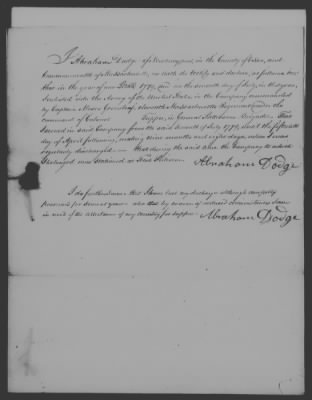 I Abraham Dodge of Newburyport, in the County of Essex, and
Commonwealth of Massachusetts, on oath do testify and declare, as follows, viz
that in the year of our Lord 1779, and on the seventh day of July, in that year,
I enlisted into the Army of the United States in the Company commanded
by Captain Moses Greenleaf, eleventh Massachusetts Regiment under the
command of Colonel Tupper, in General Brigade, that
I served in said Company from the said seventh of July 1779, until the fifteenth
day of April following, making nine months and eight days, when I was
regularly discharged. — that during the said time the Company to which
I belonged was stationed
Abraham Dodge
I do further declare that I have lost my discharge although carefully
preserved for several years — also that by reason of reduced circumstances I am
in need of the assistance of my Country for support.
Abraham Dodge